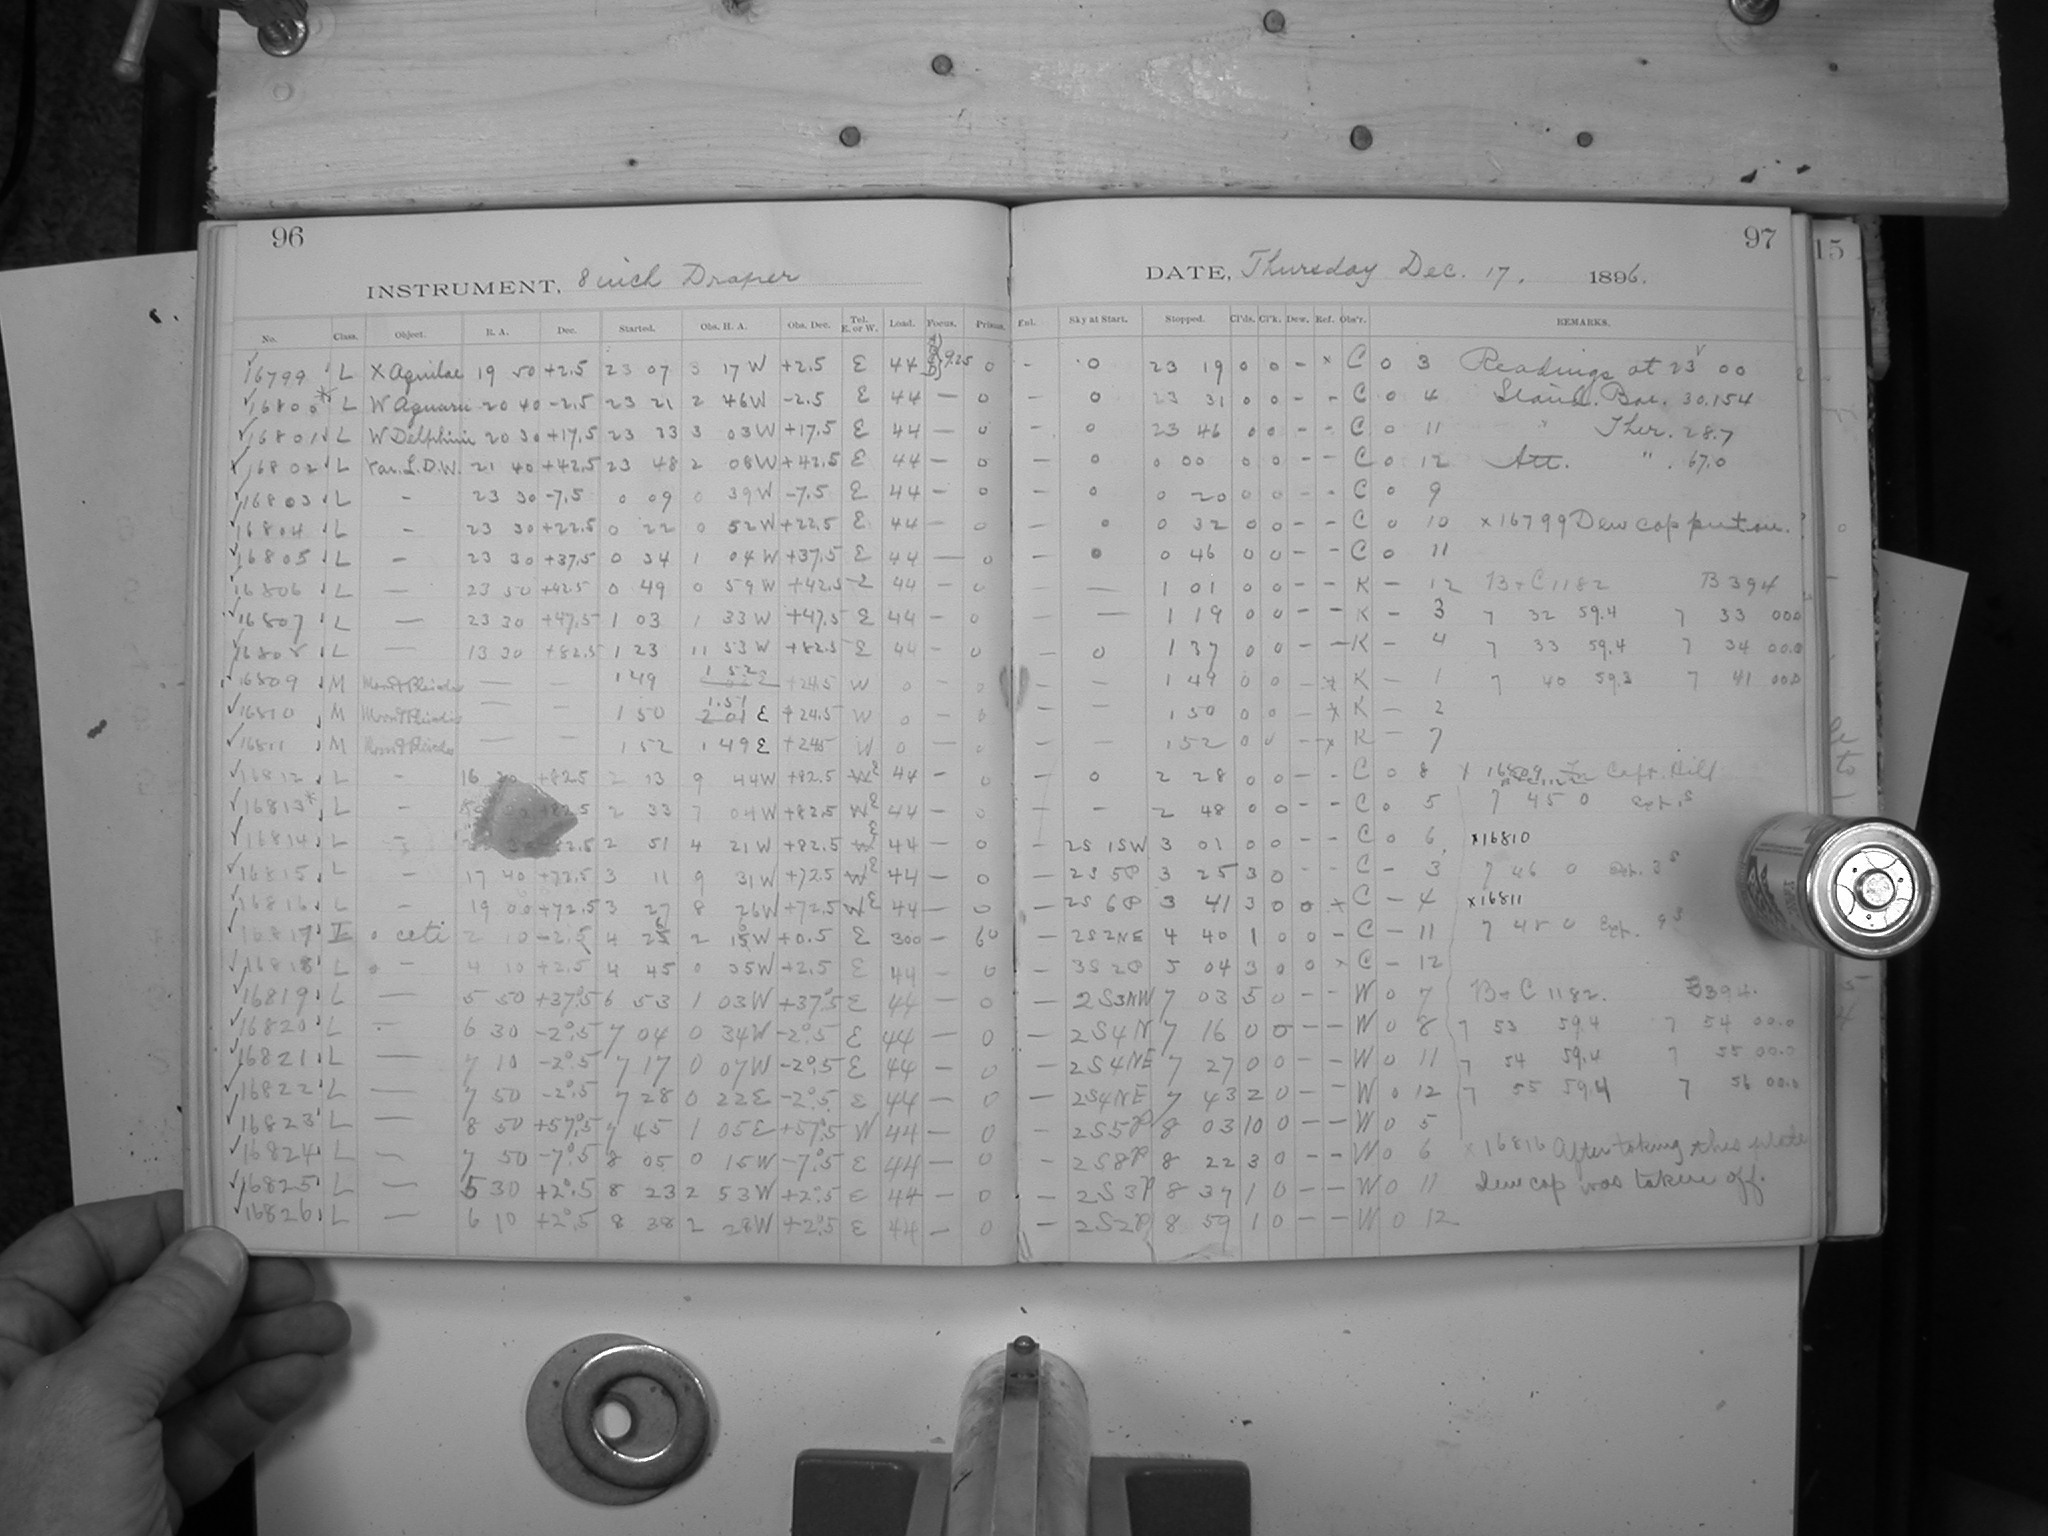 96
INSTRUMENT, 8 inch Draper
No. Class. Object. R. A. Dec. Started. Obs. H. A. Obs. Dec. Tel. E. or W. Load. Focus. Prisms.
16799 L X Aquilae 19 50 +2.5 23 07 3 17 W +2.5 E 44 9.25 0
16800* L W Aquarii 20 40 -2.5 23 21 2 46 W -2.5 E 44 — 0
16801 L W Delphini 20 30 +17.5 23 33 3 03 W +17.5 E 44 — 0
16802 L Var. S.D.W. 21 40 +42.5 23 48 2 08 W +42.5 E 44 — 0
16803 L - 23 30 -7.5 0 09 0 39 W -7.5 E 44 — 0
16804 L - 23 30 +22.5 0 22 0 52 W +22.5 E 44 — 0
16805 L — 23 30 +37.5 0 34 1 04 W +37.5 E 44 — 0
16806 L — 23 50 +42.5 0 49 0 59 W +42.5 E 44 0
16807 L — 23 30 +47.5 1 03 1 33 W +47.5 E 44 — 0
16808 L — 13 30 +82.5 1 23 11 53 W +82.5 E 44 — 0
16809 M Moon & Pleiades — — 1 49 1 52 +24.5 W 0 - 0
16810 M Moon & Pleiades — — 1 50 1.51 2 01 E +24.5 W 0 - 0
16811 M Moon & Pleiades — — 1 52 1 49 E +24.5 W 0 — 0
16812 L - 16 +82.5 2 13 9 44 W +82.5 W E 44 - 0
16813* L - 2 33 7 04 W +82.5 W E 44 — 0
16814 L - 2 51 4 21 W +82.5 W E 44 — 0
16815 L - 17 40 +72.5 3 11 9 31 W +72.5 W E 44 — 0
16816 L - 19 00 +72.5 3 27 8 26 W +72.5 W E 44 — 0
16817 I o Ceti 2 10 -2.5 4 2 W +0.5 E 300 — 0
16818 L - 4 10 +2.5 4 45 0 35 W +2.5 E 44 — 0
16819 L — 5 50 +37°.5 6 53 1 03 W +37°.5 E 44 — 0
16820 L - 6 30 -2°.5 7 04 0 34 W -2°.5 E 44 — 0
16821 L — 7 10 -2°.5 7 17 0 07 W -2°.5 E 44 — 0
16822 L — 7 50 -2°.5 7 28 0 22 E -2°.5 E 44 — 0
16823 L — 8 50 +57°.5 7 45 1 05 E +57°.5 W 44 — 0
16824 L — 7 50 -7°.5 8 05 0 15 W -7°.5 E 44 — 0
16825 L — 5 30 +2°.5 8 23 2 53 W +2°.5 E 44 — 0
16826 L — 6 10 +2°.5 8 38 2 28 W +2°.5 E 44 — 0
97
DATE, Thursday Dec. 17, 1896.
Ext. Sky at Start. Stopped. Cl'ds. Cl'k. Dew. Ref. Obs'r. REMARKS.
- 0 23 19 0 0 - x C 0 3 Readings at 23 00
- 0 23 31 0 0 - - C 0 4 Stand. Bar. 30.154
- 0 23 46 0 0 - - C 0 11 " Ther. 28.7
- 0 0 00 0 0 - - C 0 12 Att. " . 67.0
- 0 0 20 0 0 - - C 0 9
- 0 0 32 0 0 - - C 0 10 x16799 Dew cap put on.
- 0 0 46 0 0 - - C 0 11
— 1 01 0 0 - - K - 12 B+C 1182 B 394
- — 1 19 0 0 - - K - 3 7 32 59.4 7 33 00.0
- 0 1 37 0 0 - - K - 4 7 33 59.4 7 34 00.0
- — 1 49 0 0 - x K - 1 7 40 59.3 7 41 00.0
- - 1 50 0 0 - x K - 2
- — 1 52 0 0 - x K - 7
- 0 2 28 0 0 - - C 0 8 x 16809
- - 2 48 0 0 - - C 0 5 7 45 0
- 2S 1SW 3 01 0 0 - - C 0 6 x16810
- 2S 5P 3 25 3 0 - - C - 3 7 46 0 Exp. 3s
- 2S 6P 3 41 3 0 0 x C - 4 x16811
- 2S 2NE 4 40 1 0 0 - C - 11 7 48 0 Exp. 9s
- 3S 2P 5 04 3 0 0 x C - 12
- 2S3NW 7 03 5 0 - - W 0 7 B+C 1182. B394.
- 2S4N 7 16 0 0 - - W 0 8 7 53 59.4 7 54 00.0
- 2S4NE 7 27 0 0 - - W 0 11 7 54 59.4 7 55 00.0
- 2S4NE 7 43 2 0 - - W 0 12 7 55 59.4 7 56 00.0
- 2S5P 8 03 10 0 - - W 0 5
- 2S8P 8 22 3 0 - - W 0 6 x 16816 After taking this plate
- 2S3P 8 37 1 0 - - W 0 11 dew cap was taken off.
- 2S2P 8 59 1 0 - - W 0 12
15